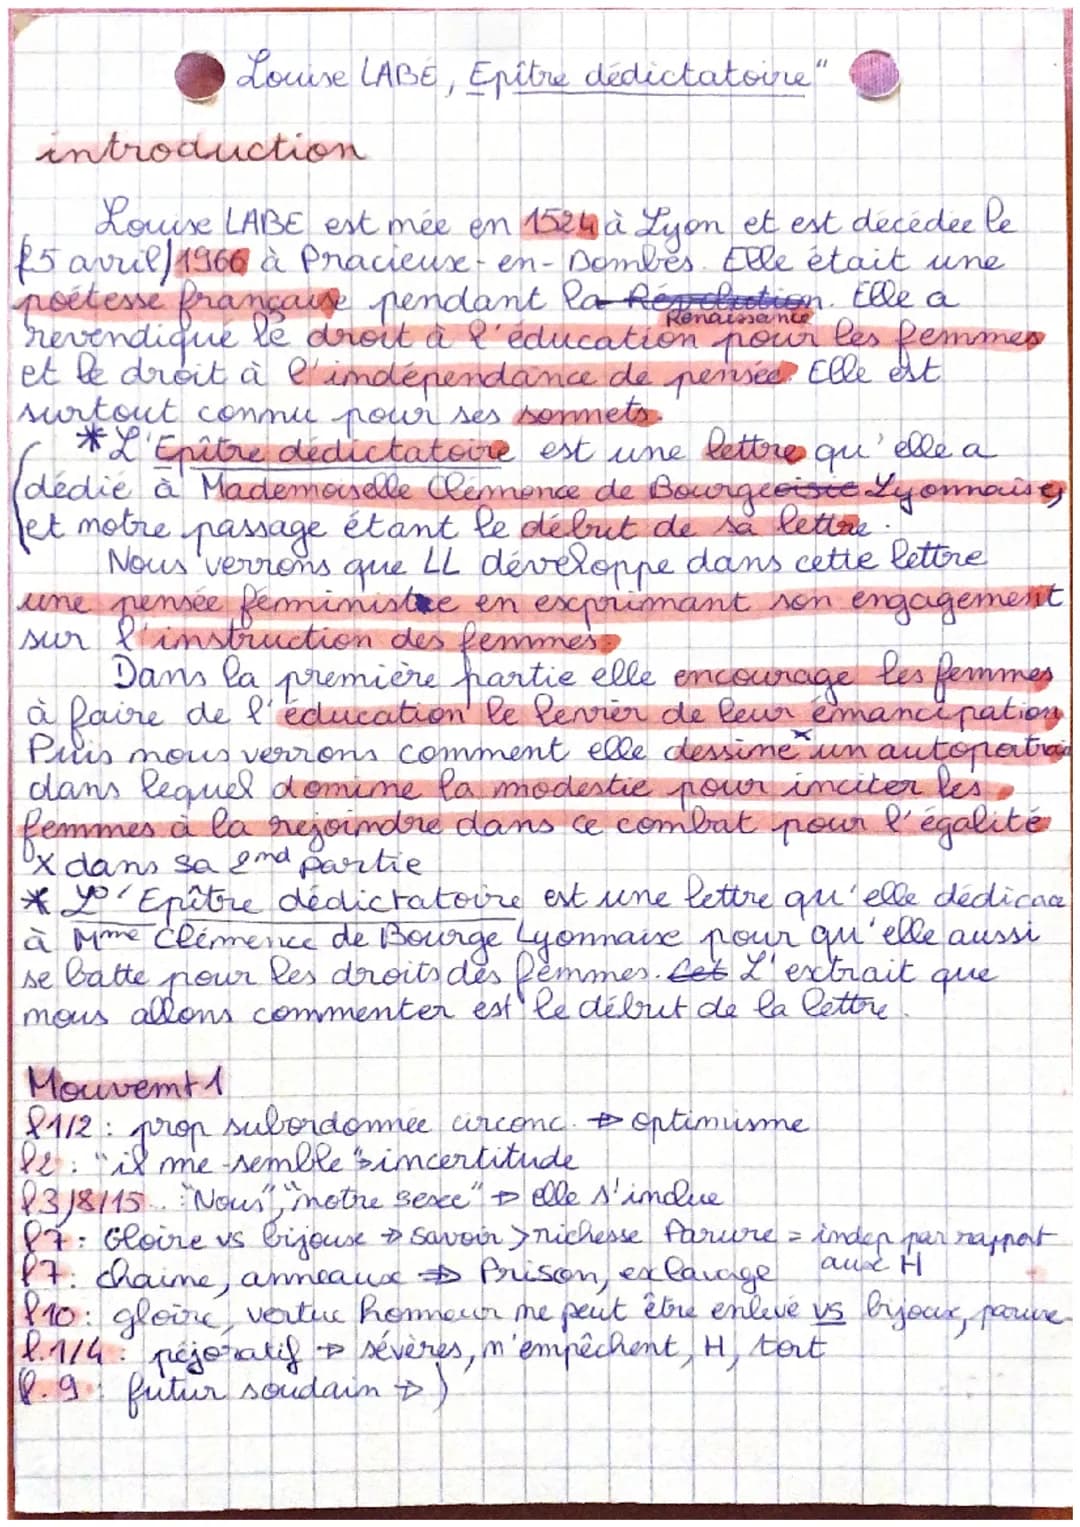 Louise LABE, Epître dédictatoire"
introduction
Louise LABE est née en 1524 à Lyon et est décédée le
25 avril 1966 à Pracieux-en-Dombes. Elle était une
poétesse française pendant la Révolution. Elle a
Renaissance
revendiqué le droit à l'éducation pour les femmes
et le droit à l'indépendance de pensée. Elle est
surtout connu pour ses sonnets.
*L'Epître dédictatoire est une lettre qu'elle a
dédié à Mademoiselle Clémence de Bourgeoisie Lyonnaise,
et notre passage étant le début de sa lettre.
Nous verrons que LL développe dans cette lettre
une pensée féministe en exprimant son engagement
sur l'instruction des femmes.
Dans la première partie elle encourage les femmes
à faire de l'éducation le levier de leur émancipation
Puis nous verrons comment elle dessine x un autoportrai
dans lequel domine la modestie pour inciter les
femmes à la rejoindre dans ce combat pour l'égalité
x dans sa 2nd partie
* L'Epître dédictatoire est une lettre qu'elle dédicace
à Mme Clémence de Bourge Lyonnaise pour qu'elle aussi
se batte pour les droits des femmes. Cet L'extrait que
nous allons commenter est le début de la lettre.
Mouvemt 1
l1/2 : prop subordonnée circonc. => optimisme
l2 : "il me semble" > incertitude
l3/8/15.. : "Nous", "notre sexe" => elle s'inclue
l7 : Gloire vs bijoux => savoir > richesse Parure = indep par rapport
aux H
l7 : chaine, anneaux => Prison, exlavage
l10 : gloire, vertue honneur ne peut être enlevé vs bijoux, parure
l.1/4 : péjoratif => sévères, n'empêchent, H, tort
l.9 : futur soudain => )